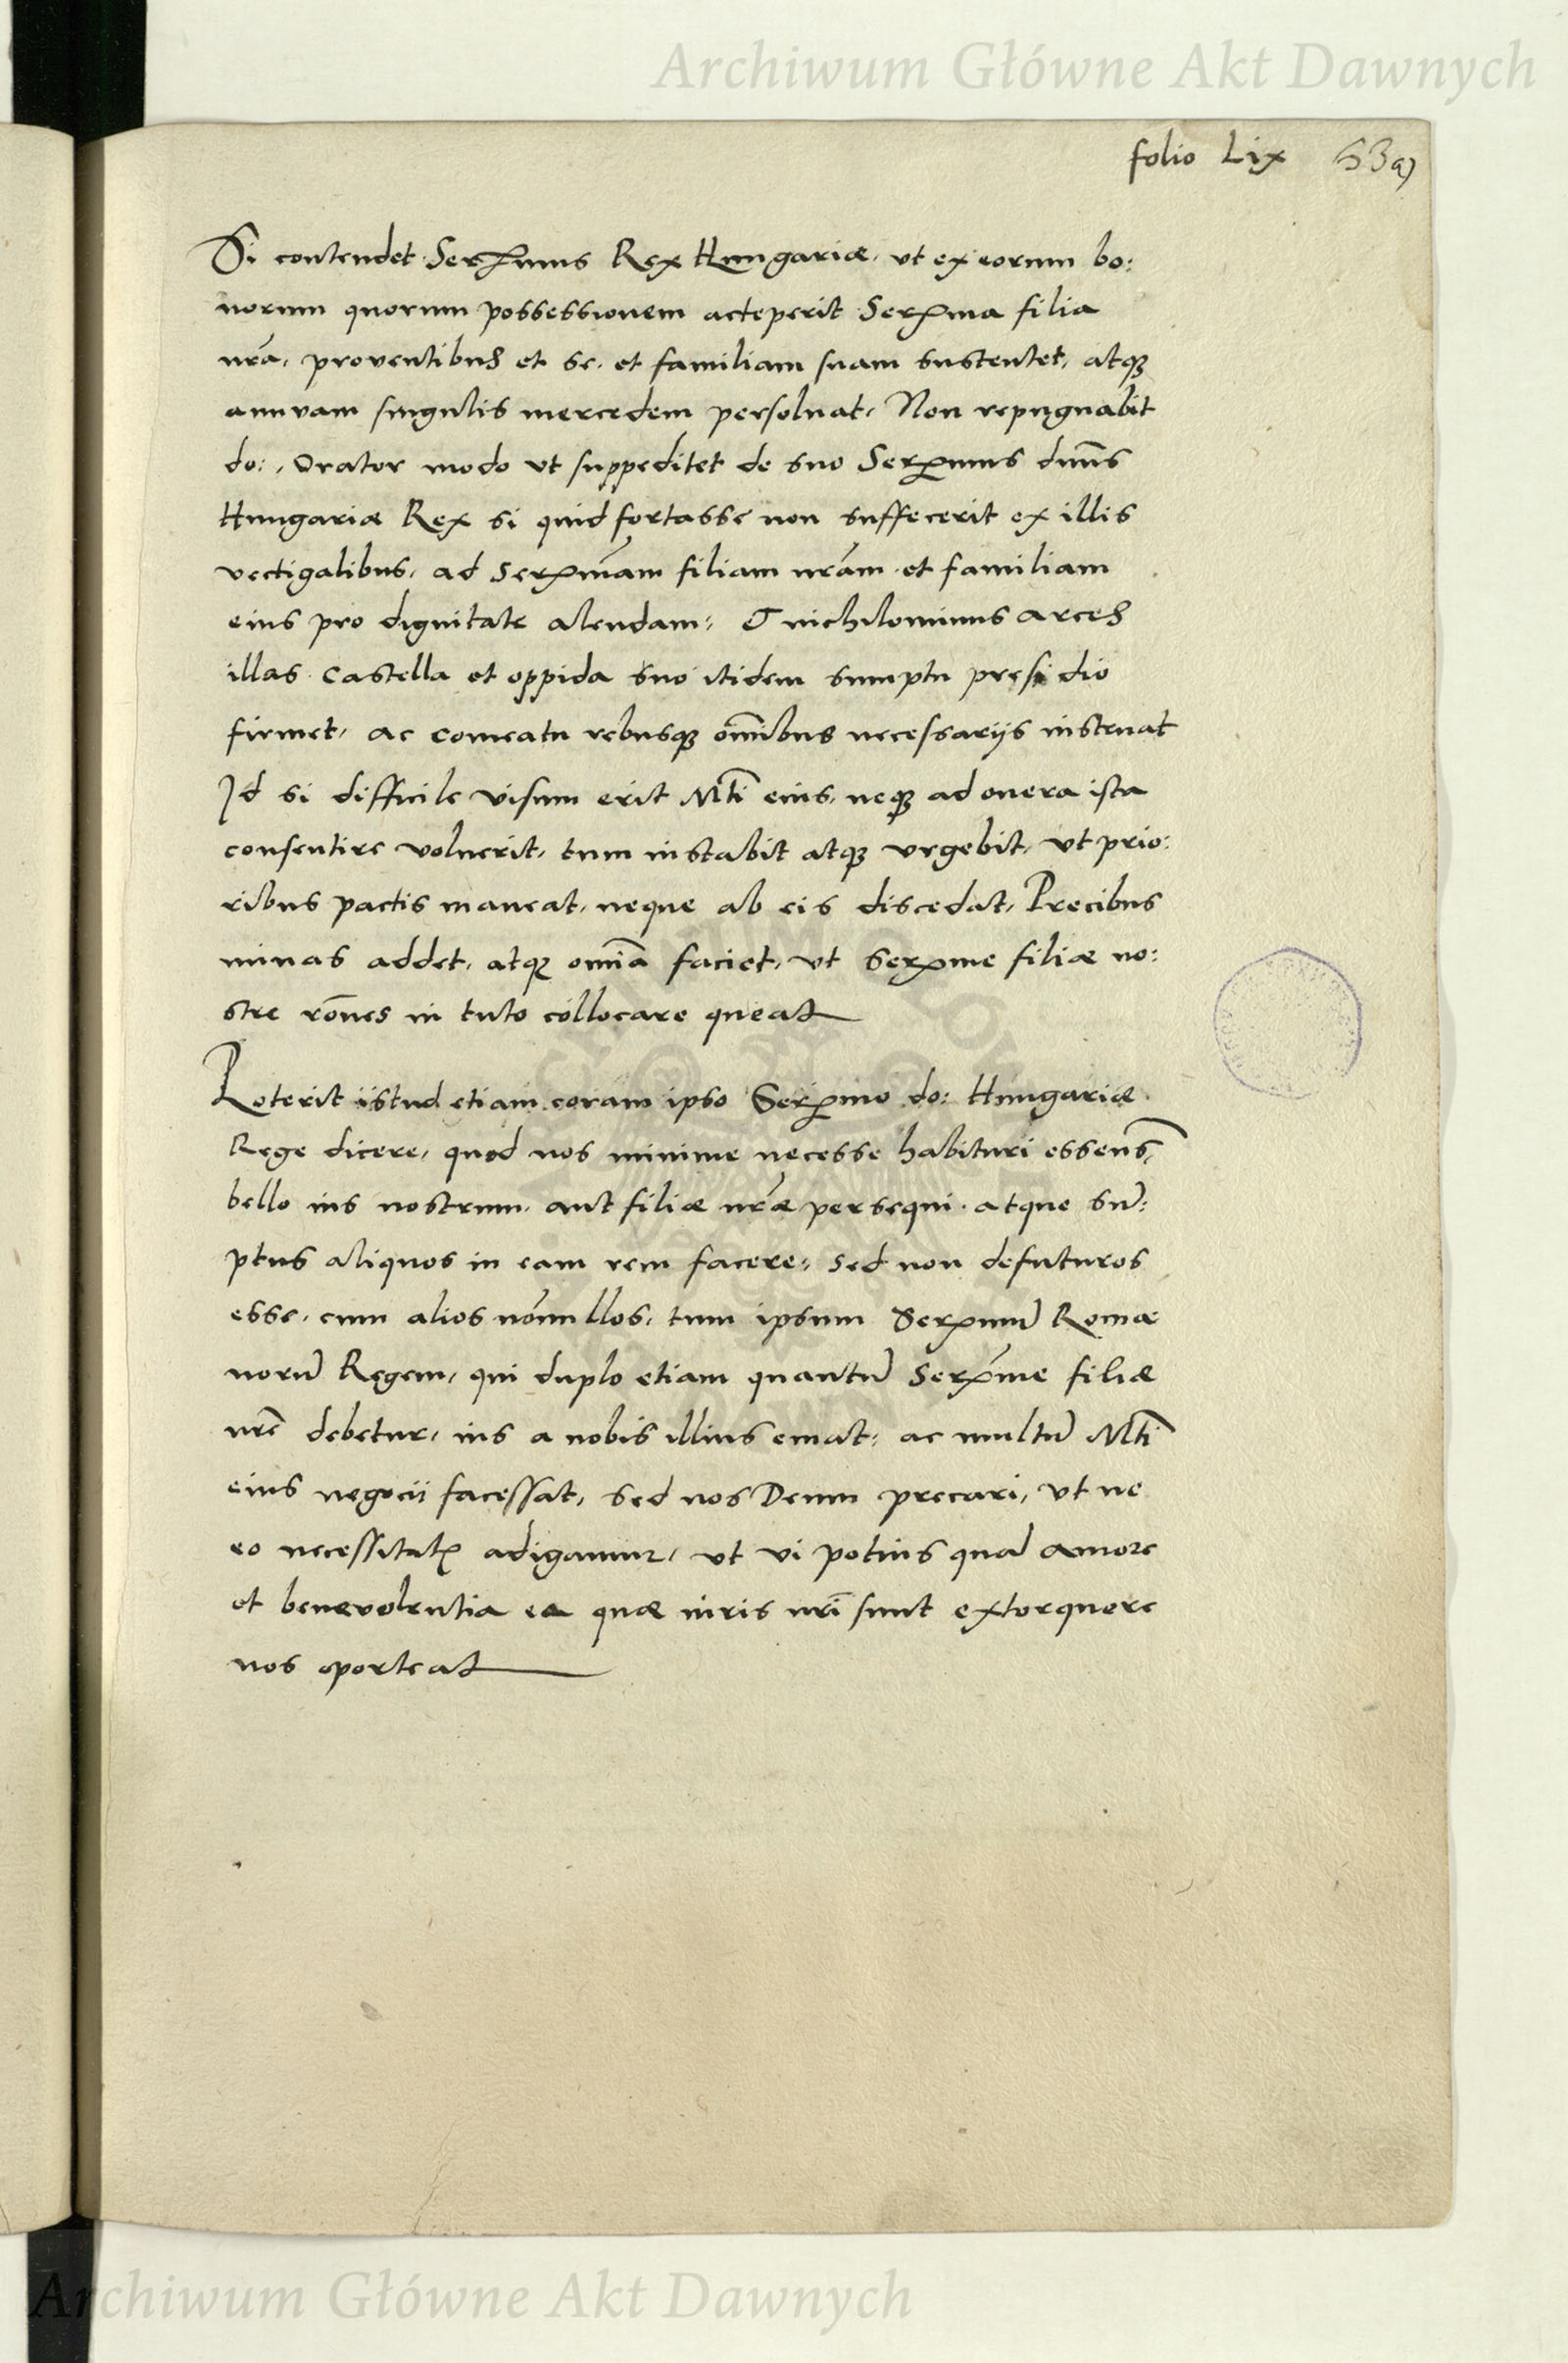 Archiwum Główne Akt Dawnych
folio Lix 53 a)
Si contendet Serx̄mus Rex Hungariæ, ut ex eorum bo:
norum quorum possessionem acceperit Serx̄ma filia
nr̄a, proventibus et se, et familiam suam sustentet, atq
annuam singulis mercedem persoluat, Non repugnabit
do:, Orator modo ut suppeditet de suo Serx̄mus dnu̅s
Hungariæ Rex si quid fortasse non suffecerit ex illis
vectigalibus, ad Serx̄mam filiam nr̄am et familiam
eius pro dignitate alendam: Et nichilominus arces
illas castella et oppida suo itidem sumptu presidio
firmet, ac comeatu rebusq omi̅bus necessariis instruat
Id si difficile visum erit Mti̅ eius, neq ad onera ista
consentire voluerit, tum instabit atq urgebit, ut prio:
ribus pactis maneat, neque ab eis discedat, Precibus
minas addet, atq omi̅a faciet, ut Serx̄me filiæ no:
stre ro̅nes in tuto collocare queat
Poterit istud etiam coram ipso Serx̄mo do: Hungariæ
Rege dicere, quod nos minime necesse habituri essem̅s,
bello ius nostrum, aut filiæ nr̄æ persequi, atque su̅:
ptus aliquos in eam rem facere: sed non defuturos
esse, cum alios no̅nullos, tum ipsum Serx̄mu̅ Roma
noru̅ Regem, qui duplo etiam quantu̅ Serx̄me filiæ
nr̄e debetur, ius a nobis illius emat: ac multu̅ Mti̅
eius negocii facessat, sed nos Deum precari, ut ne
eo necessitatis adigamur, ut vi potius qua̅ amore
et benevolentia ea quæ iuris nr̄i sunt extorquere
nos oporteat
Archiwum Główne Akt Dawnych